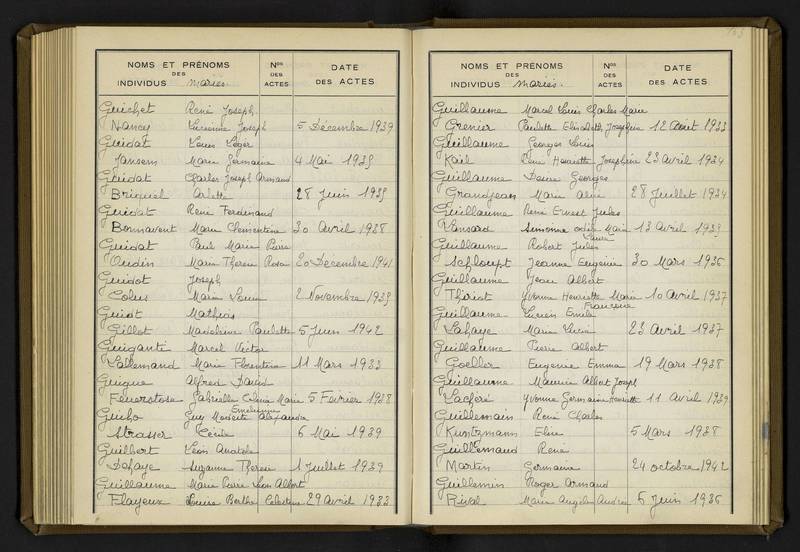 NOMS ET PRÉNOMS
DES
INDIVIDUS mariés.
Nos DES ACTES
DATE DES ACTES
Guichet René Joseph
Nancy Lucienne Joseph 5 Décembre 1939
Guidat Louis Léger
Jansem Marie Germaine 4 Mai 1935
Guidat Charles Joseph Armand
Briquel Arlette 28 Juin 1935
Guidat René Ferdinand
Bonnavent Marie Clémentine 30 Avril 1938
Guidat Paul Marie Pierre
Oudin Marie Thérèse Rosa 20 Décembre 1941
Guidot Joseph
Colus Maria Louise 2 Novembre 1935
Guiot Mathias
Gillot Madeleine Paulette 5 Juin 1942
Guiganti Marcel Victor
Lallemand Marie Florentine 11 Mars 1933
Guigue Alfred David
Feuerstose Gabrielle Marie 5 Février 1938
Emérienne
Guiho Guy Alexandre
Strasser Cécile 6 Mai 1939
Guilbert Léon Anatole
Dehaye Suzanne Thérèse 1 Juillet 1939
Guillaume Marie Pierre Léon Albert
Flayeux Louise Berthe Célestine 29 Avril 1933
NOMS ET PRÉNOMS
DES
INDIVIDUS mariés.
Nos DES ACTES
DATE DES ACTES
Guillaume Marcel Louis Charles Marie
Grenier Paulette Elisabeth Joséphine 12 Août 1933
Guillaume Georges Louis
Kail Rene Henriette Joséphine 23 Avril 1934
Guillaume Georges
Grandjean Marie Aline 28 Juillet 1934
Guillaume René Ernest Jules
Simonne Odile Marie 13 Avril 1935
Laure
Guillaume Robert Jules
Schloupt Jeanne Eugénie 30 Mars 1936
Guillaume Jean Albert
Thiriot Yvonne Henriette Marie 10 Avril 1937
Françoise
Guillaume Lucien Emile
Lahaye Marie Lucie 23 Avril 1937
Guillaume Pierre Albert
Goeller Eugénie Emma 19 Mars 1938
Guillaume Maurice Albert Joseph
Laféré Yvonne Germaine Henriette 11 Avril 1939
Guillemain René Charles
Kuntzmann Elise 5 Mars 1938
Guillemaud René
Martin Germaine 24 Octobre 1942
Guillemin Roger Armand
Rival Marie Angèle Andrée 6 Juin 1936